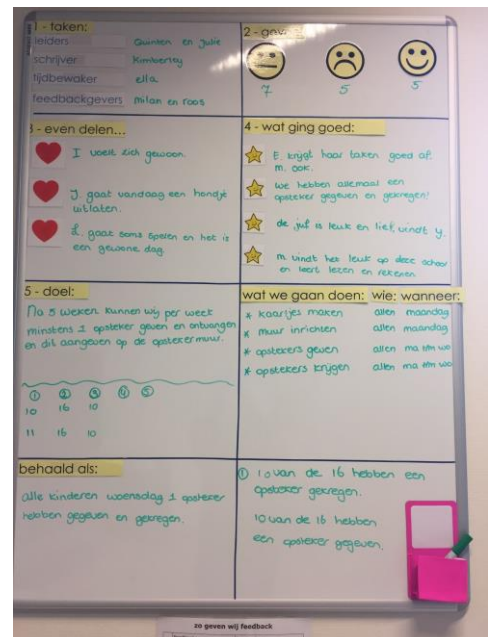 1 - taken:
leiders Quinten en Julie
schrijver Kimberley
tijdbewaker ella
feedbackgevers milan en roos
2 - gevoel
7 5 5
3 - even delen...
I voelt zich gewoon.
J. gaat vandaag een hondje
uitlaten.
L. gaat soms spelen en het is
een gewone dag.
4 - wat ging goed:
E. krijgt haar taken goed af.
m. ook.
we hebben allemaal een
opsteker gegeven en gekregen!
de juf is leuk en lief, vindt y.
m vindt het leuk op deze school
en leert lezen en rekenen.
5 - doel:
Na 5 weken kunnen wij per week
minstens 1 opsteker geven en ontvangen
en dit aangeven op de opstekermuur.
① ② ③ ④ ⑤
10 16 10
11 16 10
wat we gaan doen: wie: wanneer:
* kaartjes maken allen maandag
* muur inrichten allen maandag
* opstekers geven allen ma t/m wo
* opstekers krijgen allen ma t/m wo
behaald als:
alle kinderen woensdag 1 opsteker
hebben gegeven en gekregen.
① 10 van de 16 hebben een
opsteker gekregen.
10 van de 16 hebben
een opsteker gegeven.
zo geven wij feedback